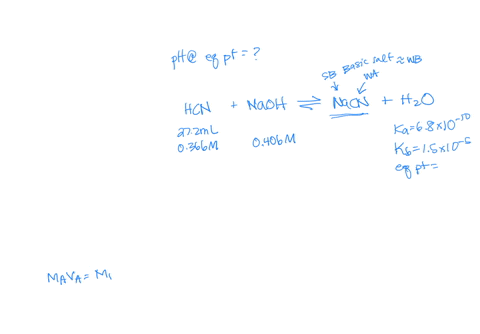 pH@ eq pt = ?
SB Basic salt ≈ WB
WA
HCN + NaOH ⇌ NaCN + H₂O
27.2mL
0.366M 0.406M
Ka = 6.8×10⁻¹⁰
Kb = 1.5×10⁻⁵
eq pt =
MAVA = M₁